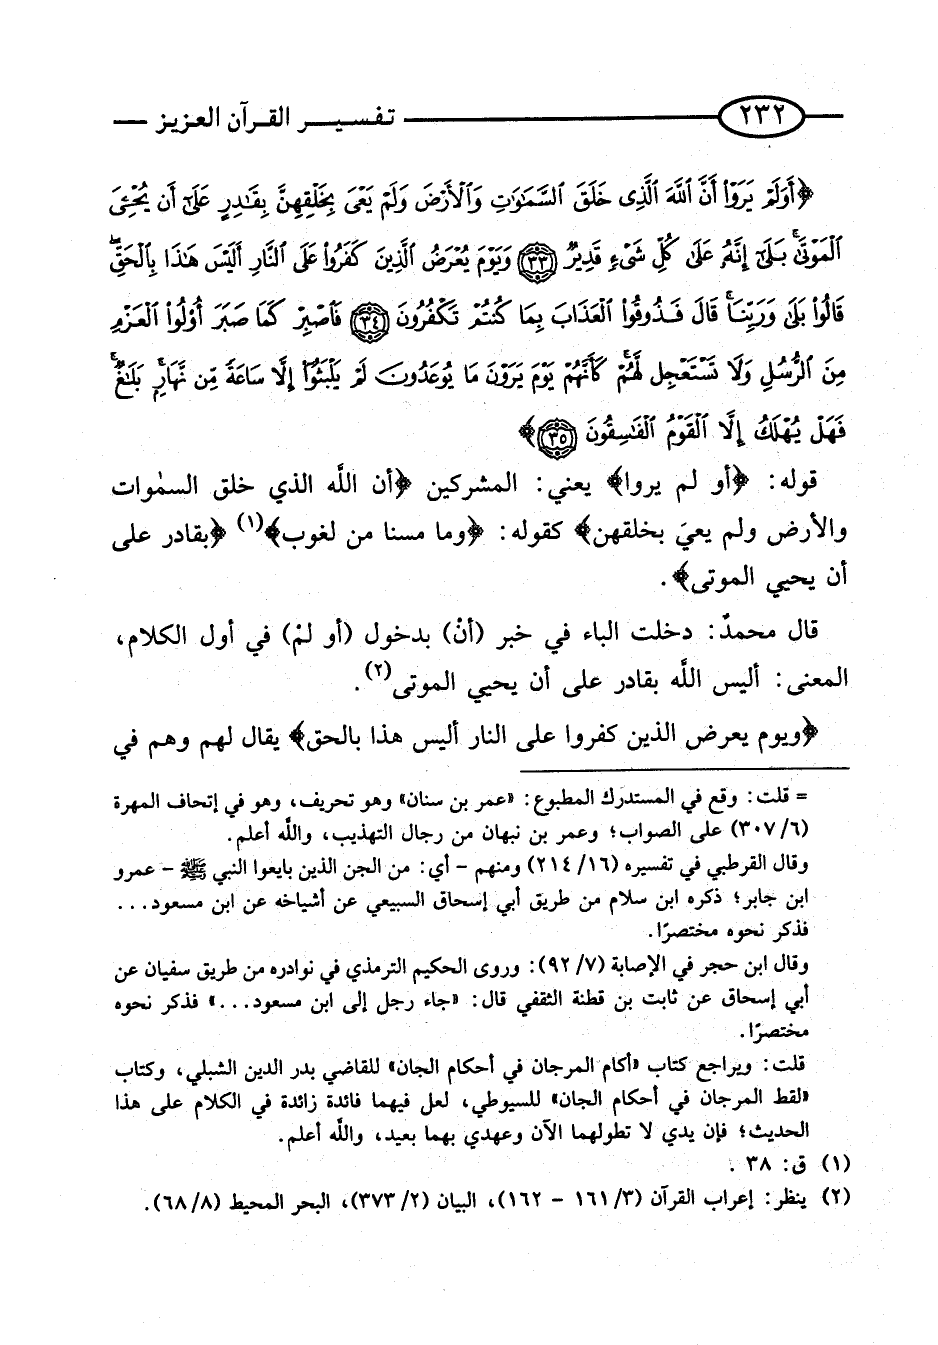 ٢٣٢ تفسير القرآن العزيز
﴿أَوَلَمْ يَرَوْا۟ أَنَّ ٱللَّهَ ٱلَّذِى خَلَقَ ٱلسَّمَٰوَٰتِ وَٱلْأَرْضَ وَلَمْ يَعْىَ بِخَلْقِهِنَّ بِقَٰدِرٍ عَلَىٰٓ أَن يُحْۦِىَ
ٱلْمَوْتَىٰ ۚ بَلَىٰٓ إِنَّهُۥ عَلَىٰ كُلِّ شَىْءٍ قَدِيرٌ ٣٣ وَيَوْمَ يُعْرَضُ ٱلَّذِينَ كَفَرُوا۟ عَلَى ٱلنَّارِ أَلَيْسَ هَٰذَا بِٱلْحَقِّ ۖ
قَالُوا۟ بَلَىٰ وَرَبِّنَا ۚ قَالَ فَذُوقُوا۟ ٱلْعَذَابَ بِمَا كُنتُمْ تَكْفُرُونَ ٣٤ فَٱصْبِرْ كَمَا صَبَرَ أُو۟لُوا۟ ٱلْعَزْمِ
مِنَ ٱلرُّسُلِ وَلَا تَسْتَعْجِل لَّهُمْ ۚ كَأَنَّهُمْ يَوْمَ يَرَوْنَ مَا يُوعَدُونَ لَمْ يَلْبَثُوٓا۟ إِلَّا سَاعَةً مِّن نَّهَارٍۭ ۚ بَلَٰغٌ ۚ
فَهَلْ يُهْلَكُ إِلَّا ٱلْقَوْمُ ٱلْفَٰسِقُونَ ٣٥﴾
قوله: ﴿أو لم يروا﴾ يعني: المشركين ﴿أن اللَّه الذي خلق السمٰوات
والأرض ولم يعيَ بخلقهن﴾ كقوله: ﴿وما مسنا من لغوب﴾(١) ﴿بقادر على
أن يحيي الموتى﴾.
قال محمدٌ: دخلت الباء في خبر (أنْ) بدخول (أو لمْ) في أول الكلام،
المعنى: أليس اللَّه بقادر على أن يحيي الموتى(٢).
﴿ويوم يعرض الذين كفروا على النار أليس هذا بالحق﴾ يقال لهم وهم في
= قلت: وقع في المستدرك المطبوع: «عمر بن سنان» وهو تحريف، وهو في إتحاف المهرة
(٦/ ٣٠٧) على الصواب؛ وعمر بن نبهان من رجال التهذيب، واللَّه أعلم.
وقال القرطبي في تفسيره (١٦/ ٢١٤) ومنهم - أي: من الجن الذين بايعوا النبي ﷺ - عمرو
ابن جابر؛ ذكره ابن سلام من طريق أبي إسحاق السبيعي عن أشياخه عن ابن مسعود...
فذكر نحوه مختصرًا.
وقال ابن حجر في الإصابة (٧/ ٩٢): وروى الحكيم الترمذي في نوادره من طريق سفيان عن
أبي إسحاق عن ثابت بن قطنة الثقفي قال: «جاء رجل إلى ابن مسعود...» فذكر نحوه
مختصرًا.
قلت: ويراجع كتاب «أكام المرجان في أحكام الجان» للقاضي بدر الدين الشبلي، وكتاب
«لقط المرجان في أحكام الجان» للسيوطي، لعل فيهما فائدة زائدة في الكلام على هذا
الحديث؛ فإن يدي لا تطولهما الآن وعهدي بهما بعيد، واللَّه أعلم.
(١) ق: ٣٨ .
(٢) ينظر: إعراب القرآن (٣/ ١٦١ - ١٦٢)، البيان (٢/ ٣٧٣)، البحر المحيط (٨/ ٦٨).